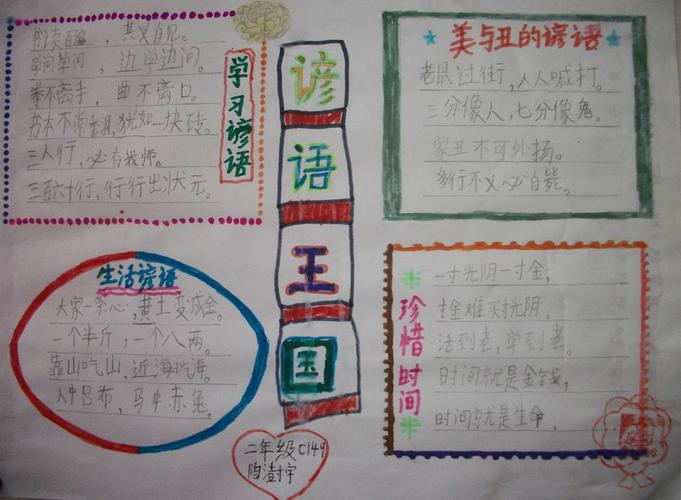 书读百遍，其义自见。
学问学问，边学边问。
拳不离手，曲不离口。
书本不常翻，犹如一块砖。
三人行，必有我师。
三百六十行，行行出状元。
学习谚语
谚语王国
美与丑的谚语
老鼠过街，人人喊打。
三分像人，七分像鬼。
家丑不可外扬。
多行不义必自毙。
生活谚语
大家一条心，黄土变成金。
一个半斤，一个八两。
靠山吃山，近海吃海。
人中吕布，马中赤兔。
珍惜时间
一寸光阴一寸金，
寸金难买寸光阴。
活到老，学到老。
时间就是金钱，
时间就是生命。
二年级C149
陶澍宇